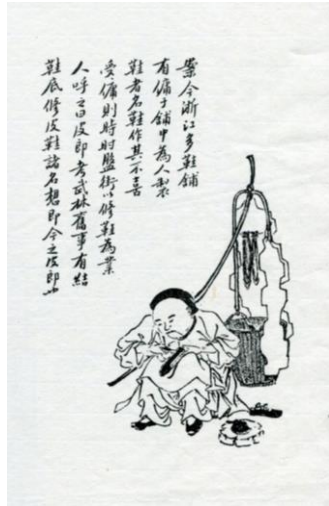 案今浙江多鞋鋪
有傭于鋪中為人製
鞋者名鞋作其不喜
受傭則時時盤街以修鞋為業
人呼之曰皮郎考武林舊事有結
鞋底修皮鞋諸名想即今之皮郎也